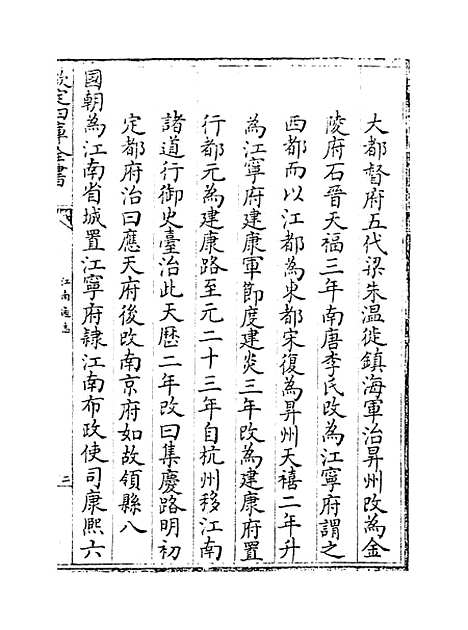 大都督府五代梁朱温徙鎮海軍治昇州改為金
陵府石晉天福三年南唐李氏改為江寧府謂之
西都而以江都為東都宋復為昇州天禧二年升
為江寧府建康軍節度建炎三年改為建康府置
行都元為建康路至元二十三年自杭州移江南
諸道行御史臺治此天歴二年改曰集慶路明初
定都府治曰應天府後改南京府如故領縣八
國朝為江南省城置江寧府隷江南布政使司康熙六
欽定四庫全書
江南通志
三